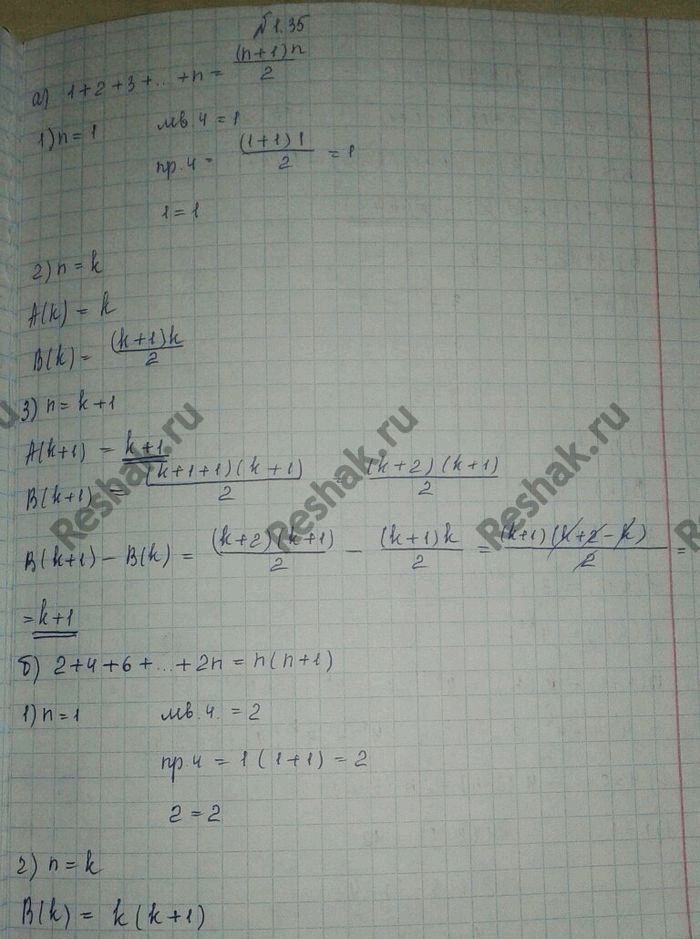 №1.35
а) 1+2+3+...+n = (n+1)n/2
1) n=1 лв.ч = 1
пр.ч = (1+1)1/2 = 1
1=1
2) n=k
A(k) = k
B(k) = (k+1)k/2
3) n=k+1
A(k+1) = k+1
B(k+1) = (k+1+1)(k+1)/2 = (k+2)(k+1)/2
B(k+1) − B(k) = (k+2)(k+1)/2 − (k+1)k/2 = (k+1)(k+2−k)/2 =
= k+1
б) 2+4+6+...+2n = n(n+1)
1) n=1 лв.ч. = 2
пр.ч = 1(1+1) = 2
2=2
2) n=k
B(k) = k(k+1)
Reshak.ru
Reshak.ru
Reshak.ru